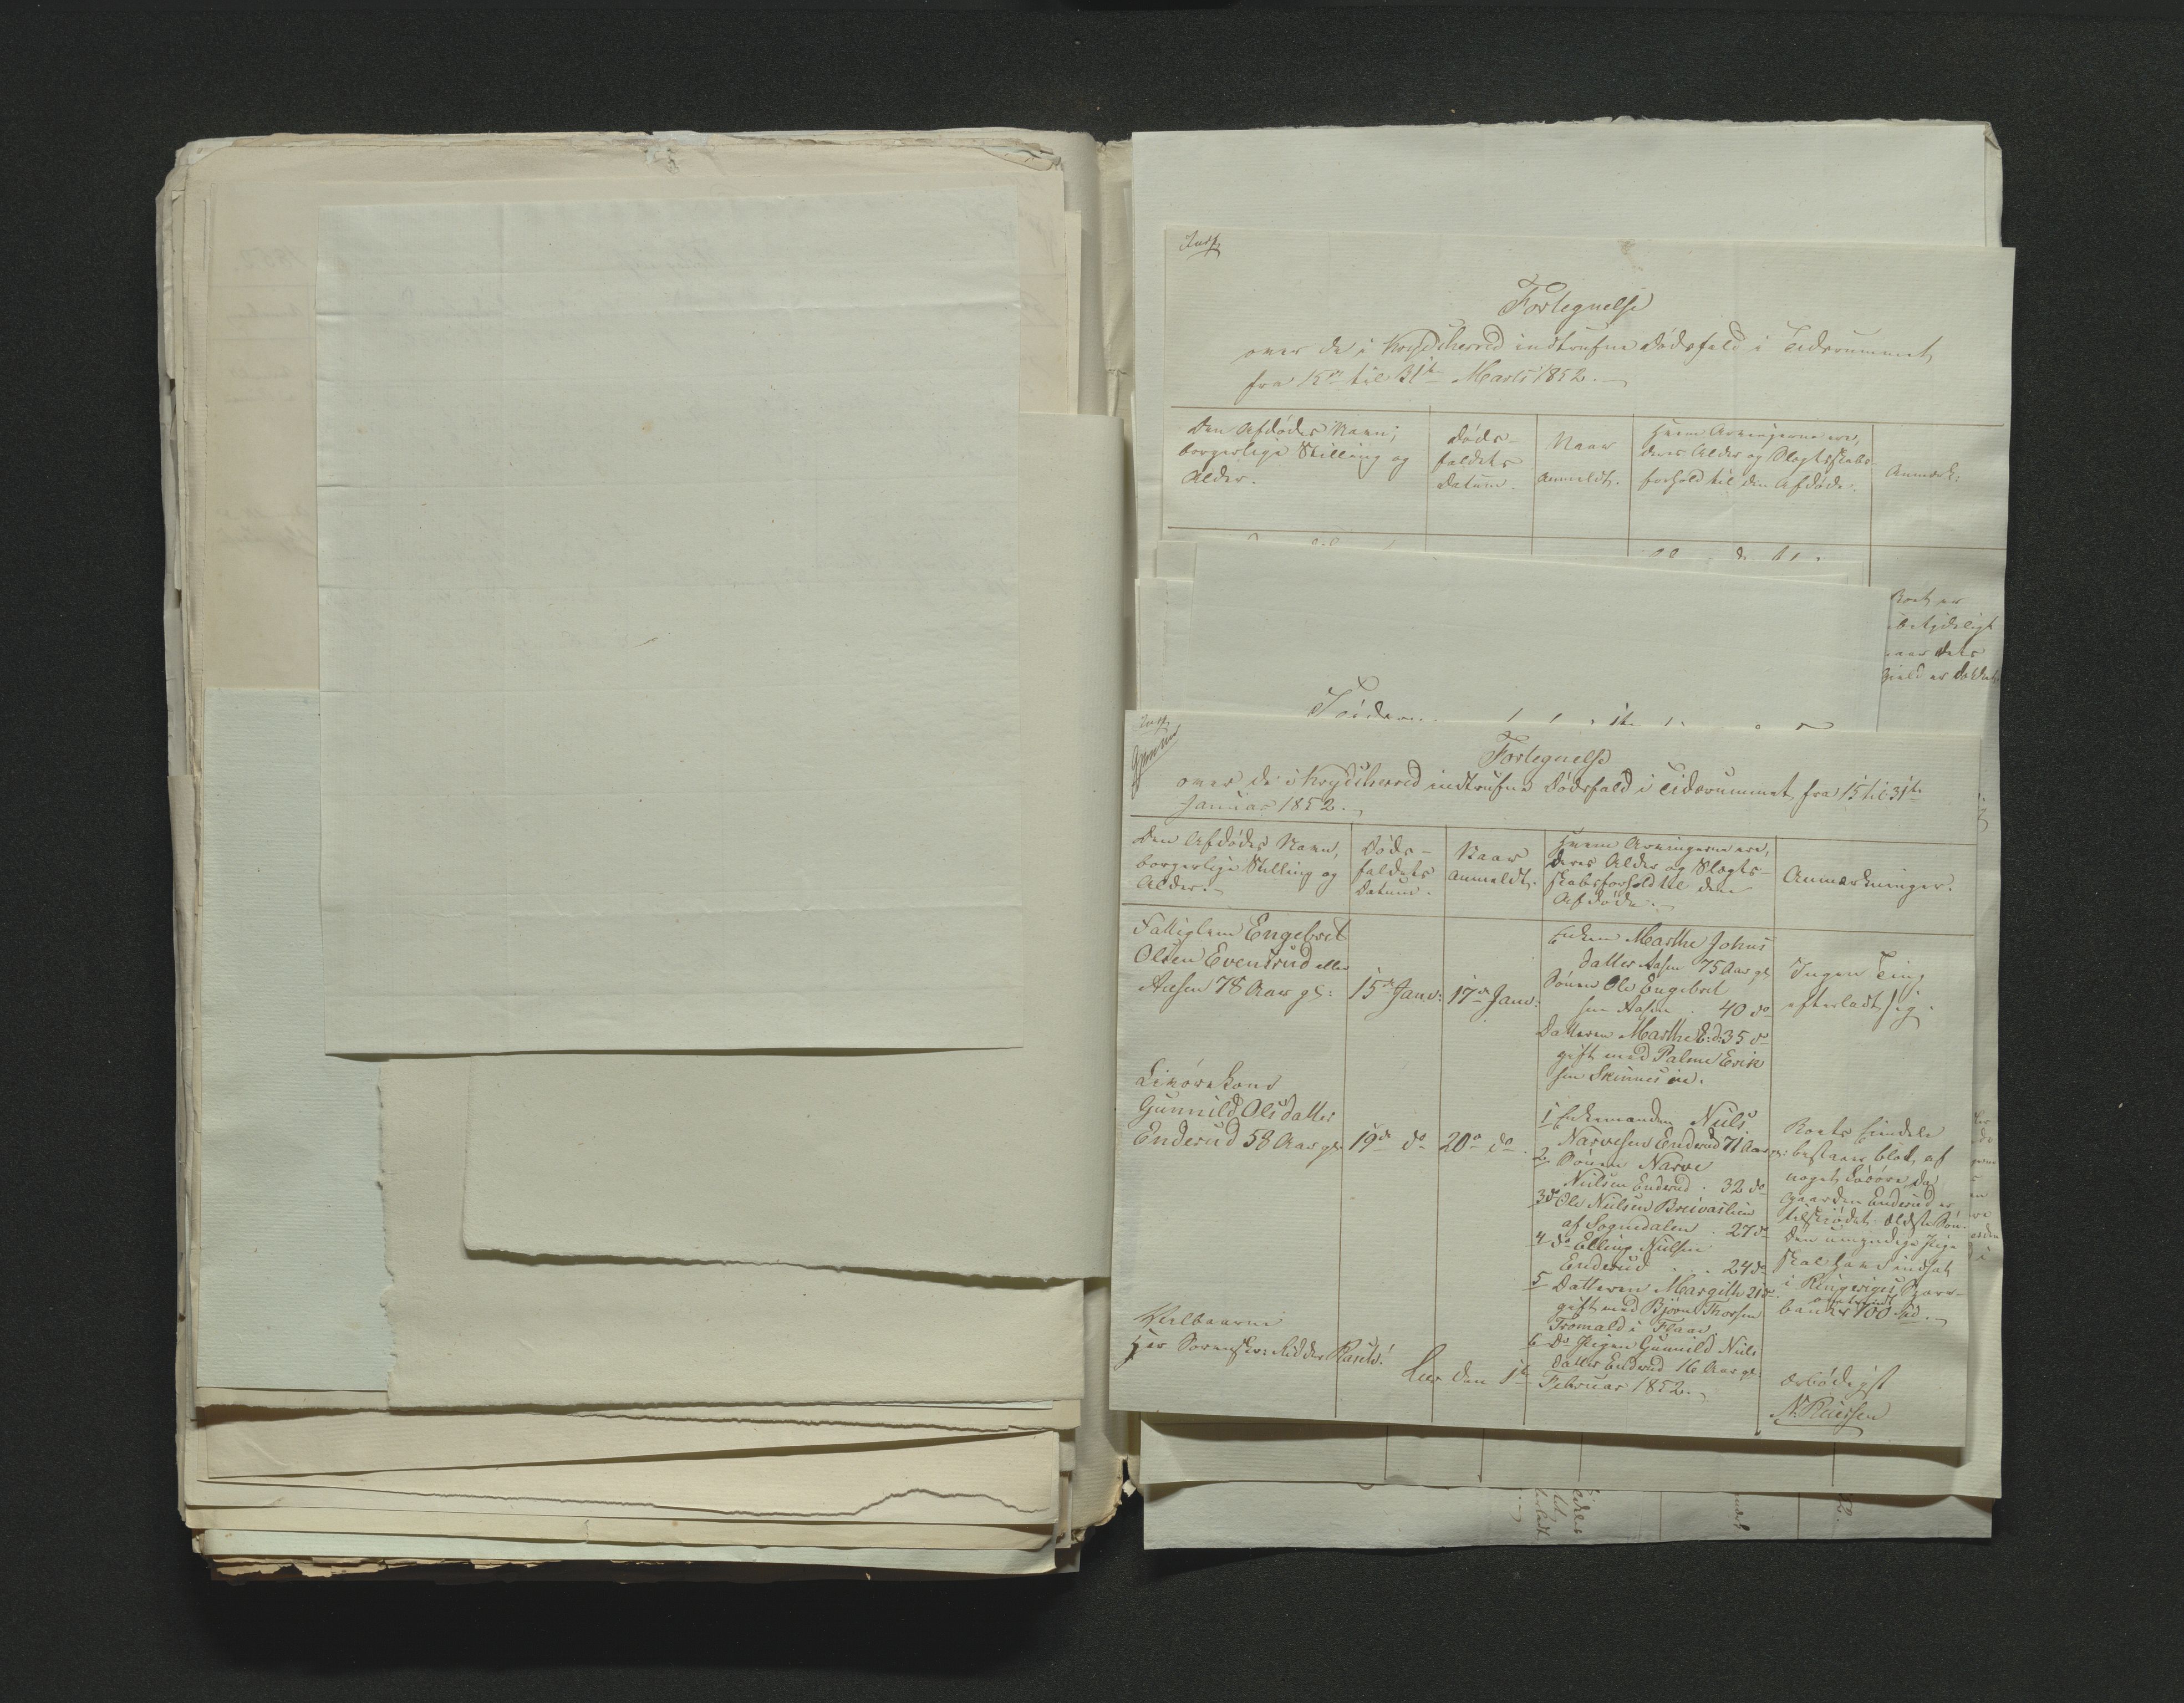 Fortegnelse
over de i Krydsherred indtrufne Dødsfald i Tidsrummet
fra 15de til 31te Marts 1852.
Den Afdødes Navn,
borgerlige Stilling og
Alder.
Døds-
faldets
Datum.
Naar
anmeldt.
Hvem Arvingerne ere,
deres Alder og Slægtskabs-
forhold til den Afdøde.
Anmærk:
Boet er
naar dets
Gjæld er
Fortegnelse
over de i Krydsherred indtrufne Dødsfald i Tidsrummet fra 15 til 31te
Januar 1852.
Den Afdødes Navn,
borgerlige Stilling og
Alder.
Døds-
faldets
Datum.
Naar
anmeldt.
Hvem Arvingerne ere,
deres Alder og Slægts-
skabsforhold til den
Afdøde.
Anmærkninger.
Fattiglem Engebret
Olsen Evensrud eller
Aasen 78 Aar gl:
15de Janv:
17de Janv:
Enken Marthe Johns
datter Aasen 75 Aar gl
Sønnen Ole Engebret
sen Aasen . 40 do
Datteren Marthe E:d: 35 do
gift med Palme Erik
sen Skinnes eie.
Ingen Ting
efterladt sig.
Gunnild Olsdatter
Enderud 58 Aar gl:
19de do
20de do
1 Enkemanden Niels
Narvesen Enderud 71 Aar gl:
2 Sønnen Narve
Nielsen Enderud . 32 do
3 do Ole Nielsen Breivaslien
af Sognedalen . 27 do
4 do Elling Nielsen
Enderud . . 24 do
5 Datteren Margith 21 do
gift med Bjørn Thorsen
Tromald i Flaae.
6 Do Pigen Gunnild Niels
datter Enderud 16 Aar gl.
Boets Eiendele
bestaaer blot af
noget Løsøre, da
Gaarden Enderud er
tilskjødet ældste Søn.
Den umyndige Pige
skal have indsat
i Ringeriges Spare-
banke omtrendt 100 Spd.
Velbaarne
Hr Sorenskr: Ridder Rasch!
Lier den 1te Februar 1852.
ærbødigst